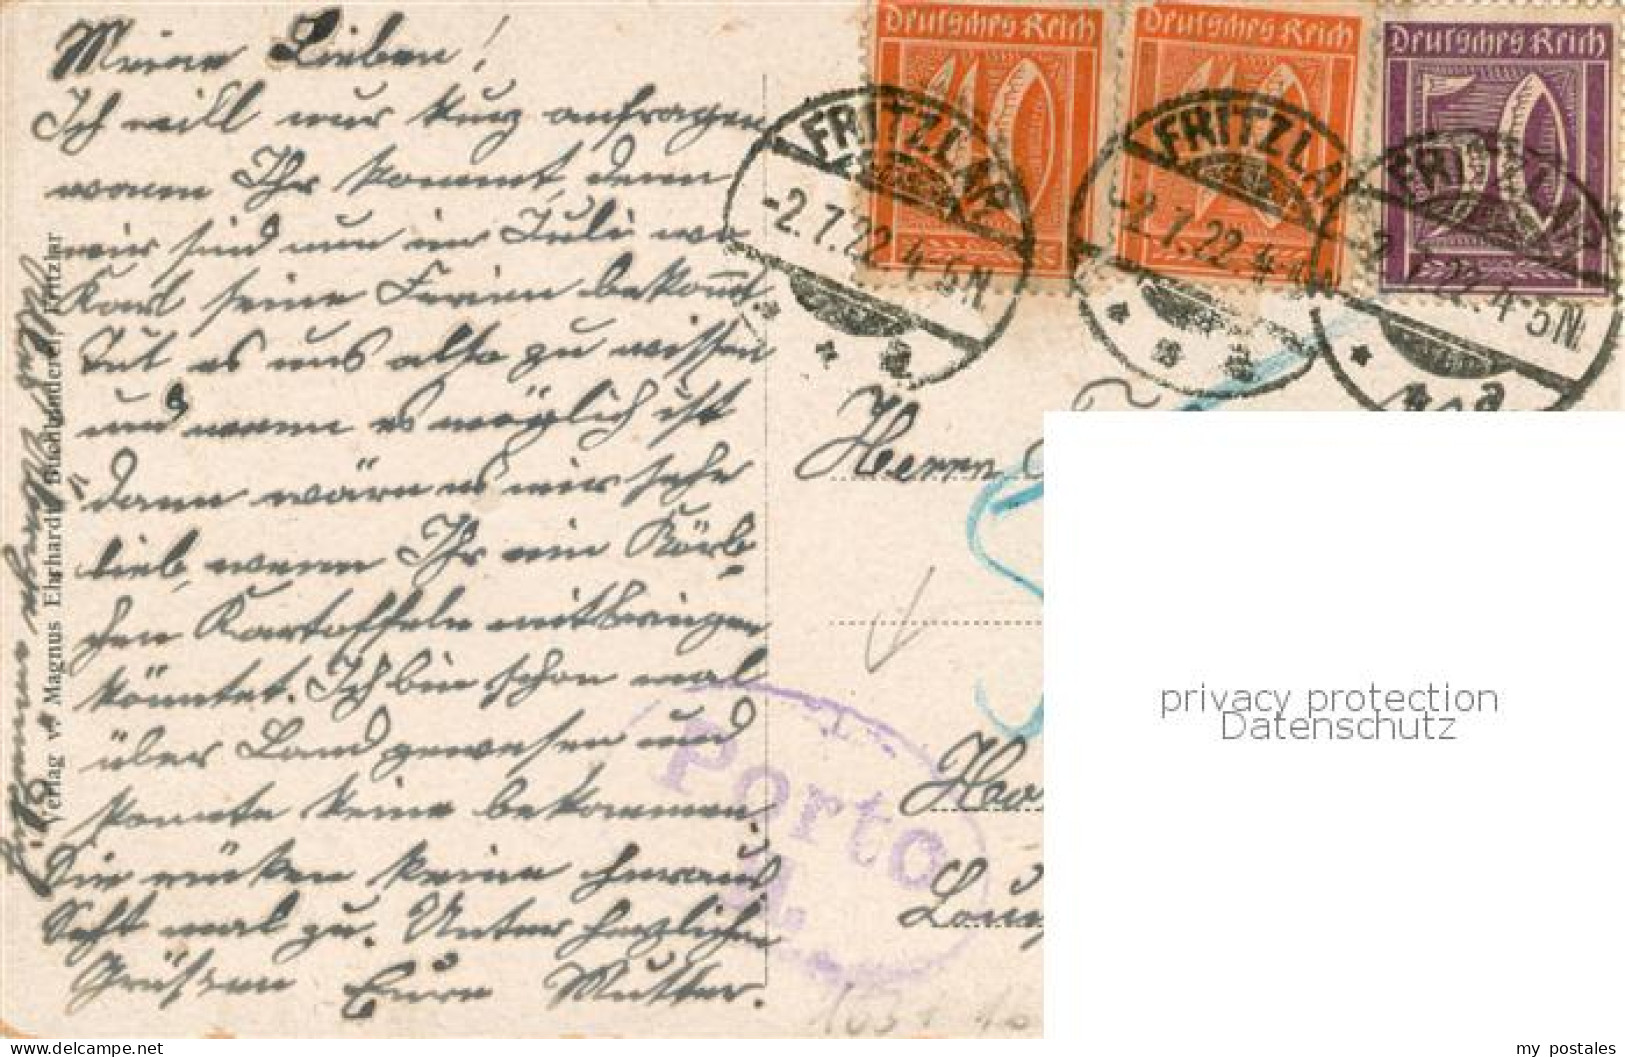 Meine Lieben!
Ich will nur kurz anfragen
wann Ihr kommt, denn
wir sind nun im Juli wo
Karl seine Ferien bekommt
Tut es uns also zu wissen
und wenn es möglich ist
dann wäre es mir sehr
lieb, wenn Ihr ein Körb-
chen Kartoffeln mitbringen
könntet. Ich bin schon mal
über Land gewesen und
konnte keine bekommen.
Die rücken keine heraus
Seht mal zu. Unter herzlichen
Grüssen Eure Mutter.
Verlag v. Magnus Ehrhardt, Buchbinderei, Fritzlar
Deutsches Reich
40
Deutsches Reich
40
Deutsches Reich
50
FRITZLAR
-2.7.22.4-5N.
FRITZLAR
-2.7.22.4-5N.
FRITZLAR
-2.7.22.4-5N.
a
Herrn
Porto
privacy protection
Datenschutz
my postales
www.delcampe.net